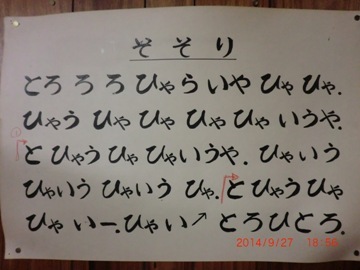 そそり
とろろろひゃらいやひゃひゃ.
ひゃうひゃひゃひゃひゃいうや.
① とひゃうひゃひゃいうや. ひゃいう
ひゃいうひゃいうひゃ. とひゃうひゃ
ひゃいー. ひゃい↗ とろひとろ.
2014/9/27 18:56